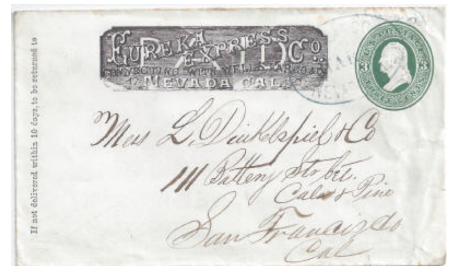 If not delivered within 10 days, to be returned to
EUREKA EXPRESS Co.
PAID
CONNECTING WITH WELLS FARGO & Co
NEVADA CAL.
3 3
Mess L. Dinkelspiel & Co
111 Battery Str bet.
Cala & Pine
San Francisco
Cal